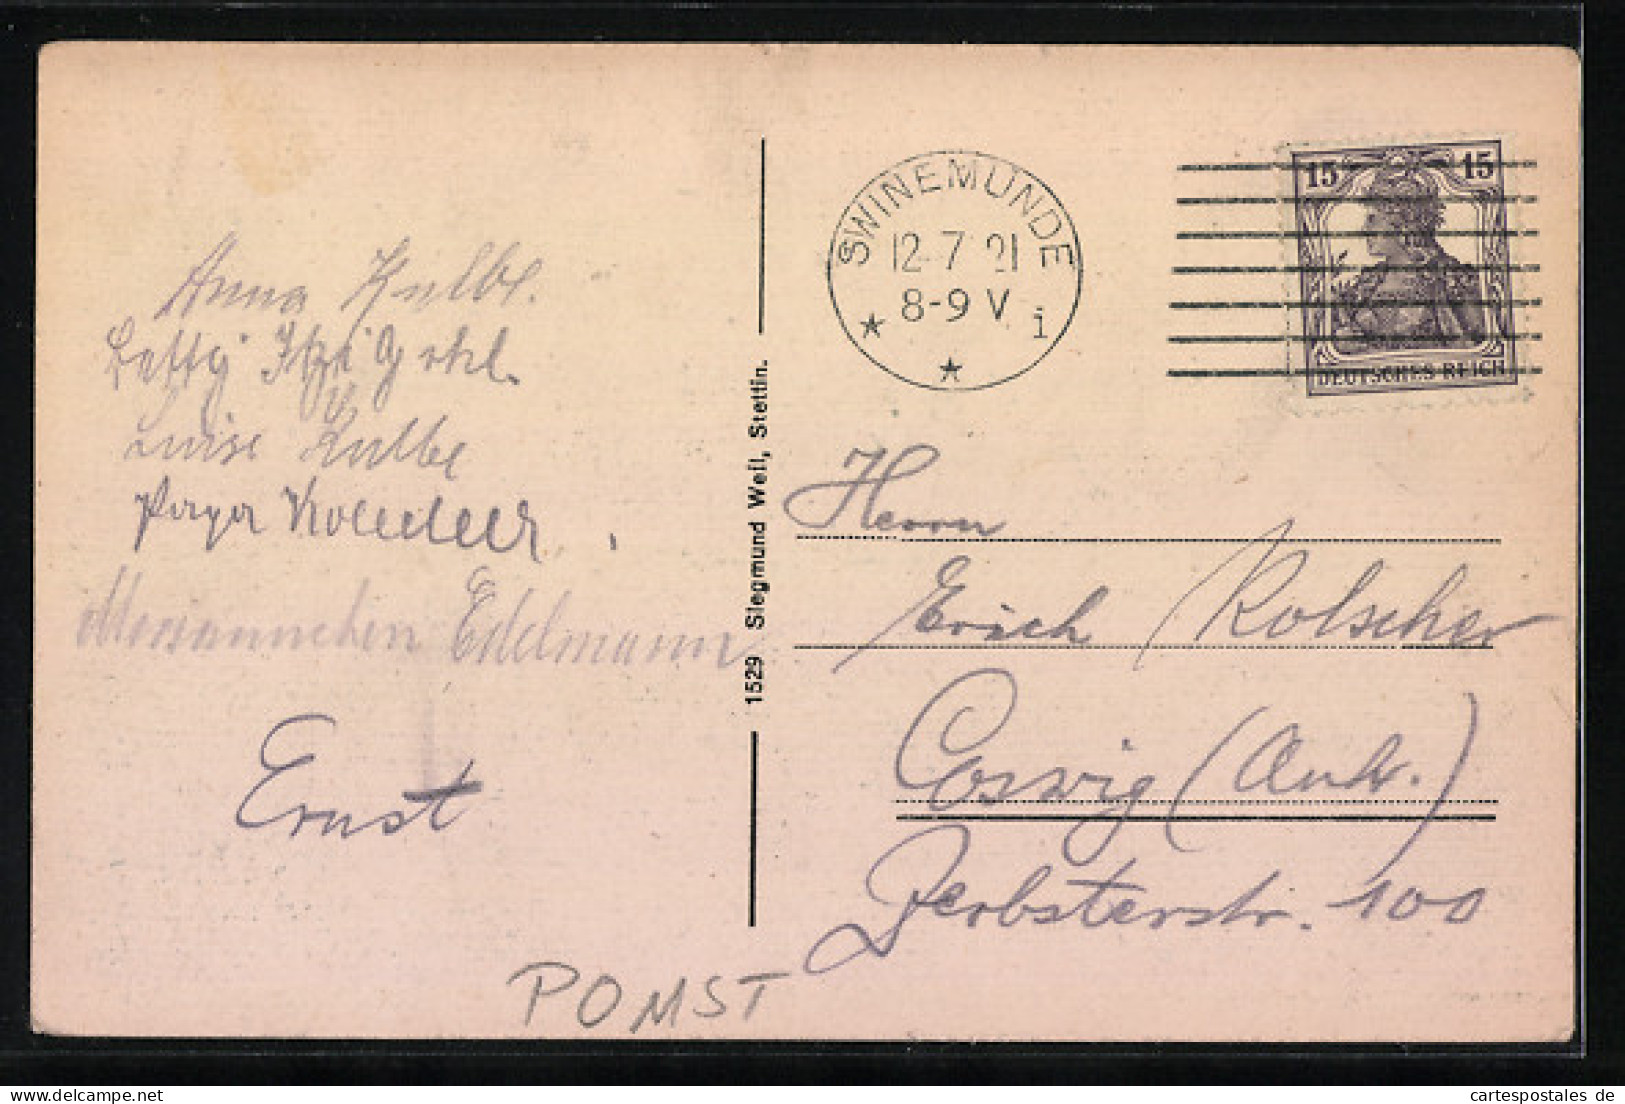 Anna Kulbe.
Luise Kulbe
Mariannchen Edelmann
Ernst
POMST
1529 Siegmund Weil, Stettin.
SWINEMÜNDE
12.7.21
8-9 V
* * i
15 15
DEUTSCHES REICH
Herrn
Erich Rolscher
Coswig (Anh.)
Zerbsterstr. 100
cartespostales de